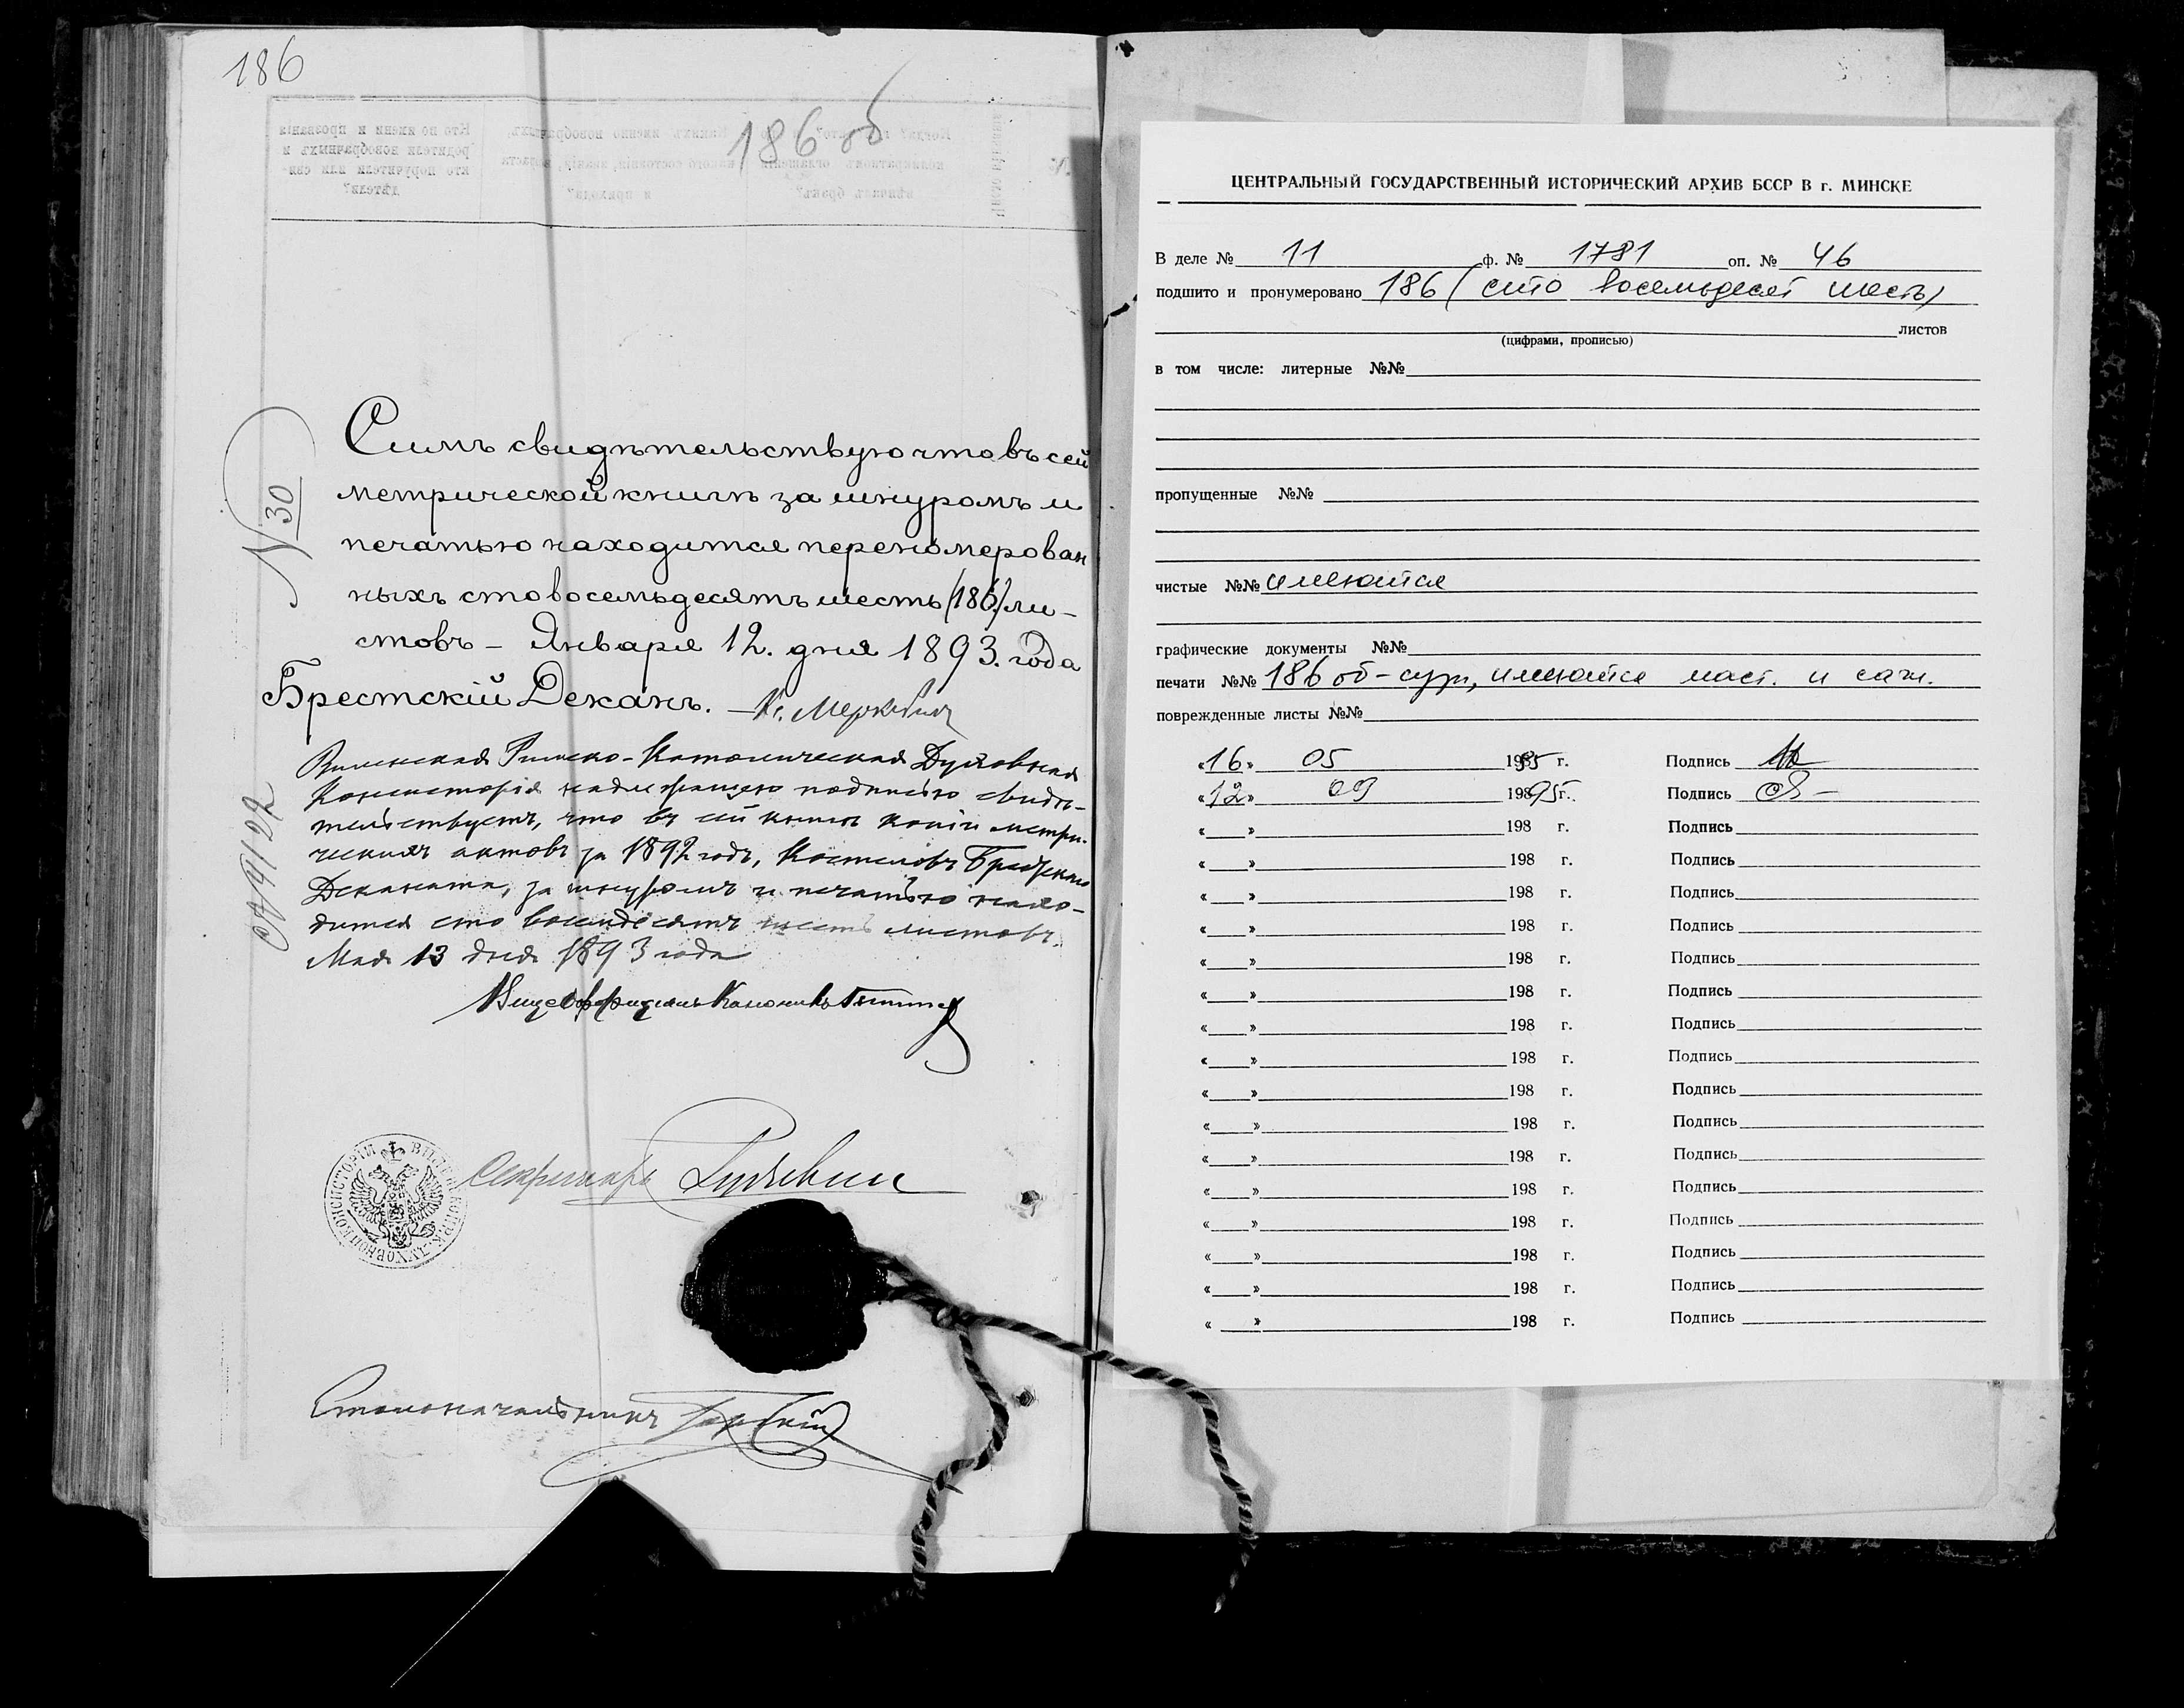 186
186 об
Кто по имени и прозванія
родители новобрачныхъ и
кто поручители или сви-
дѣтели?
№ 30
Симъ свидѣтельствую что въ сей
метрической книгѣ за шнуромъ и
печатью находится перенумерован
ныхъ сто восемьдесятъ шесть (186) ли-
стовъ – Января 12. дня 1893. года
Брестскій Деканъ. – Кс. Меркевичъ
Виленская Римско-Католическая Духовная
Консисторія надлежащею подписью свидѣ-
тельствуетъ, что въ сей книгѣ копіи метри-
ческихъ актовъ за 1892 годъ, Костеловъ Брестскаго
Деканата, за шнуромъ и печатью нахо-
дится сто восемдесятъ шесть листовъ.
Мая 13 дня 1893 года
Вице Оффиціалъ Каноникъ
Секретарь
ДУХОВНОЙ КОНСИСТОРІИ
Столоначальникъ
ЦЕНТРАЛЬНЫЙ ГОСУДАРСТВЕННЫЙ ИСТОРИЧЕСКИЙ АРХИВ БССР В г. МИНСКЕ
В деле № 11 ф. № 1781 оп. № 46
подшито и пронумеровано 186 (сто восемьдесят шесть)
листов
(цифрами, прописью)
в том числе: литерные №№
пропущенные №№
чистые №№ имеются
графические документы №№
печати №№ 186 об – сург., имеются маст. и саж.
поврежденные листы №№
«16» 05 1985 г. Подпись
«12» 09 1995 г. Подпись
« » 198 г. Подпись
« » 198 г. Подпись
« » 198 г. Подпись
« » 198 г. Подпись
« » 198 г. Подпись
« » 198 г. Подпись
« » 198 г. Подпись
« » 198 г. Подпись
« » 198 г. Подпись
« » 198 г. Подпись
« » 198 г. Подпись
« » 198 г. Подпись
« » 198 г. Подпись
« » 198 г. Подпись
« » 198 г. Подпись
« » 198 г. Подпись